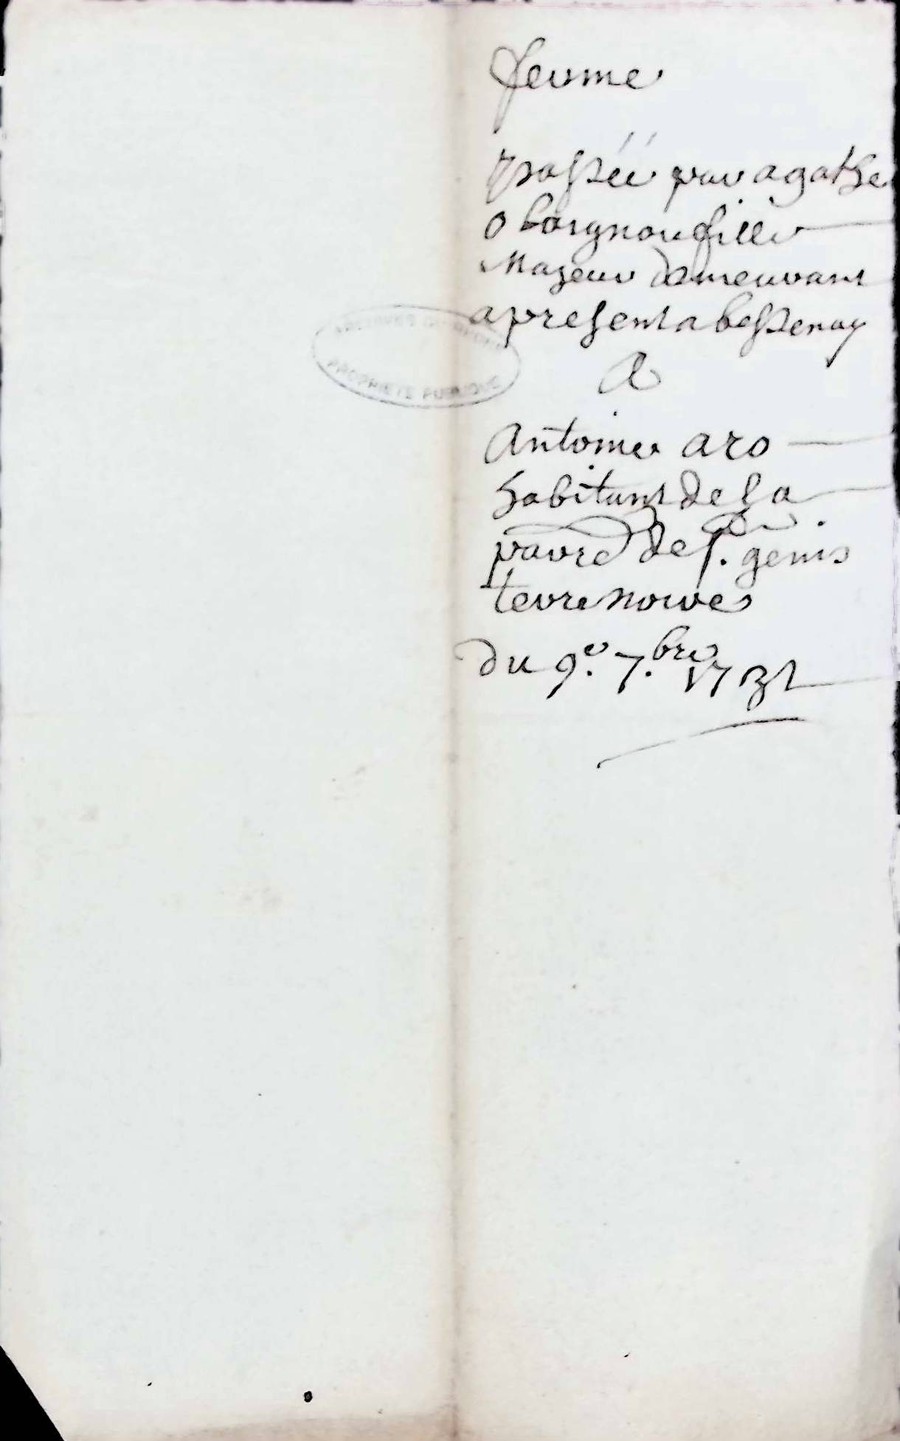 ferme
passée par agathe
oborgnon fille
Majeur demeurant
apresent a bessenay
A
Antoine aro
habitant de la
parre de st. genis
terre noire
du 9e. 7.bre 1731
ARCHIVES DU RHONE
PROPRIETE PUBLIQUE